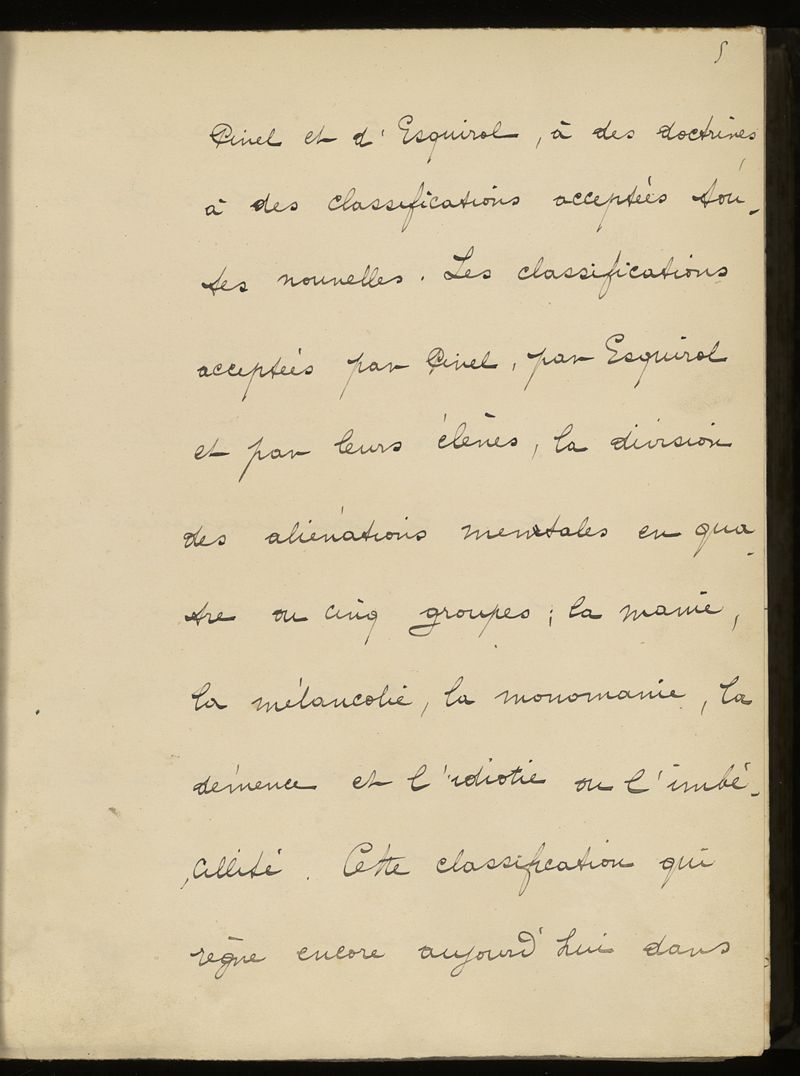 5
Pinel et d'Esquirol, à des doctrines,
à des classifications acceptées tou-
tes nouvelles. Les classifications
acceptées par Pinel, par Esquirol
et par leurs élèves, la division
des aliénations mentales en qua-
tre ou cinq groupes ; la manie,
la mélancolie, la monomanie, la
démence et l'idiotie ou l'imbé-
cillité. Cette classification qui
règne encore aujourd'hui dans